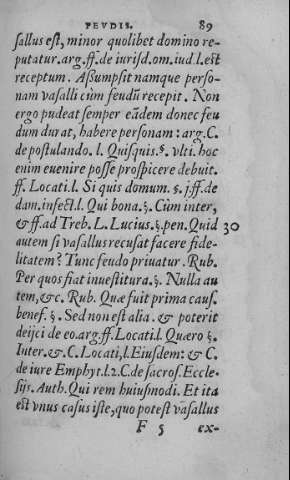 FEVDIS. 89
sallus est, minor quolibet domino re-
putatur.arg.ff.de iurisd.om.iud.l.est
receptum. Assumpsit namque perso-
nam vasalli cùm feudū recepit. Non
ergo pudeat semper eādem donec feu
dum durat, habere personam: arg.C.
de postulando. l. Quisquis.§. vlti. hoc
enim euenire posse prospicere debuit.
ff. Locati.l. Si quis domum. §. j.ff.de
dam.infect.l. Qui bona.§. Cùm inter,
&ff.ad Treb. L. Lucius.§.pen. Quid 30
autem si vasallus recusat facere fide-
litatem? Tunc feudo priuatur. Rub.
Per quos fiat inuestitura.§. Nulla au
tem,&c. Rub. Quæ fuit prima caus.
benef. §. Sed non est alia. & poterit
deijci de eo.arg.ff.Locati.l. Quæro §.
Inter.&.C. Locati,l.Eiusdem: & C.
de iure Emphyt.l.2.C.de sacros.Eccle-
sijs. Auth. Qui rem huiusmodi. Et ita
est vnus casus iste, quo potest vasallus
F 5 ex-